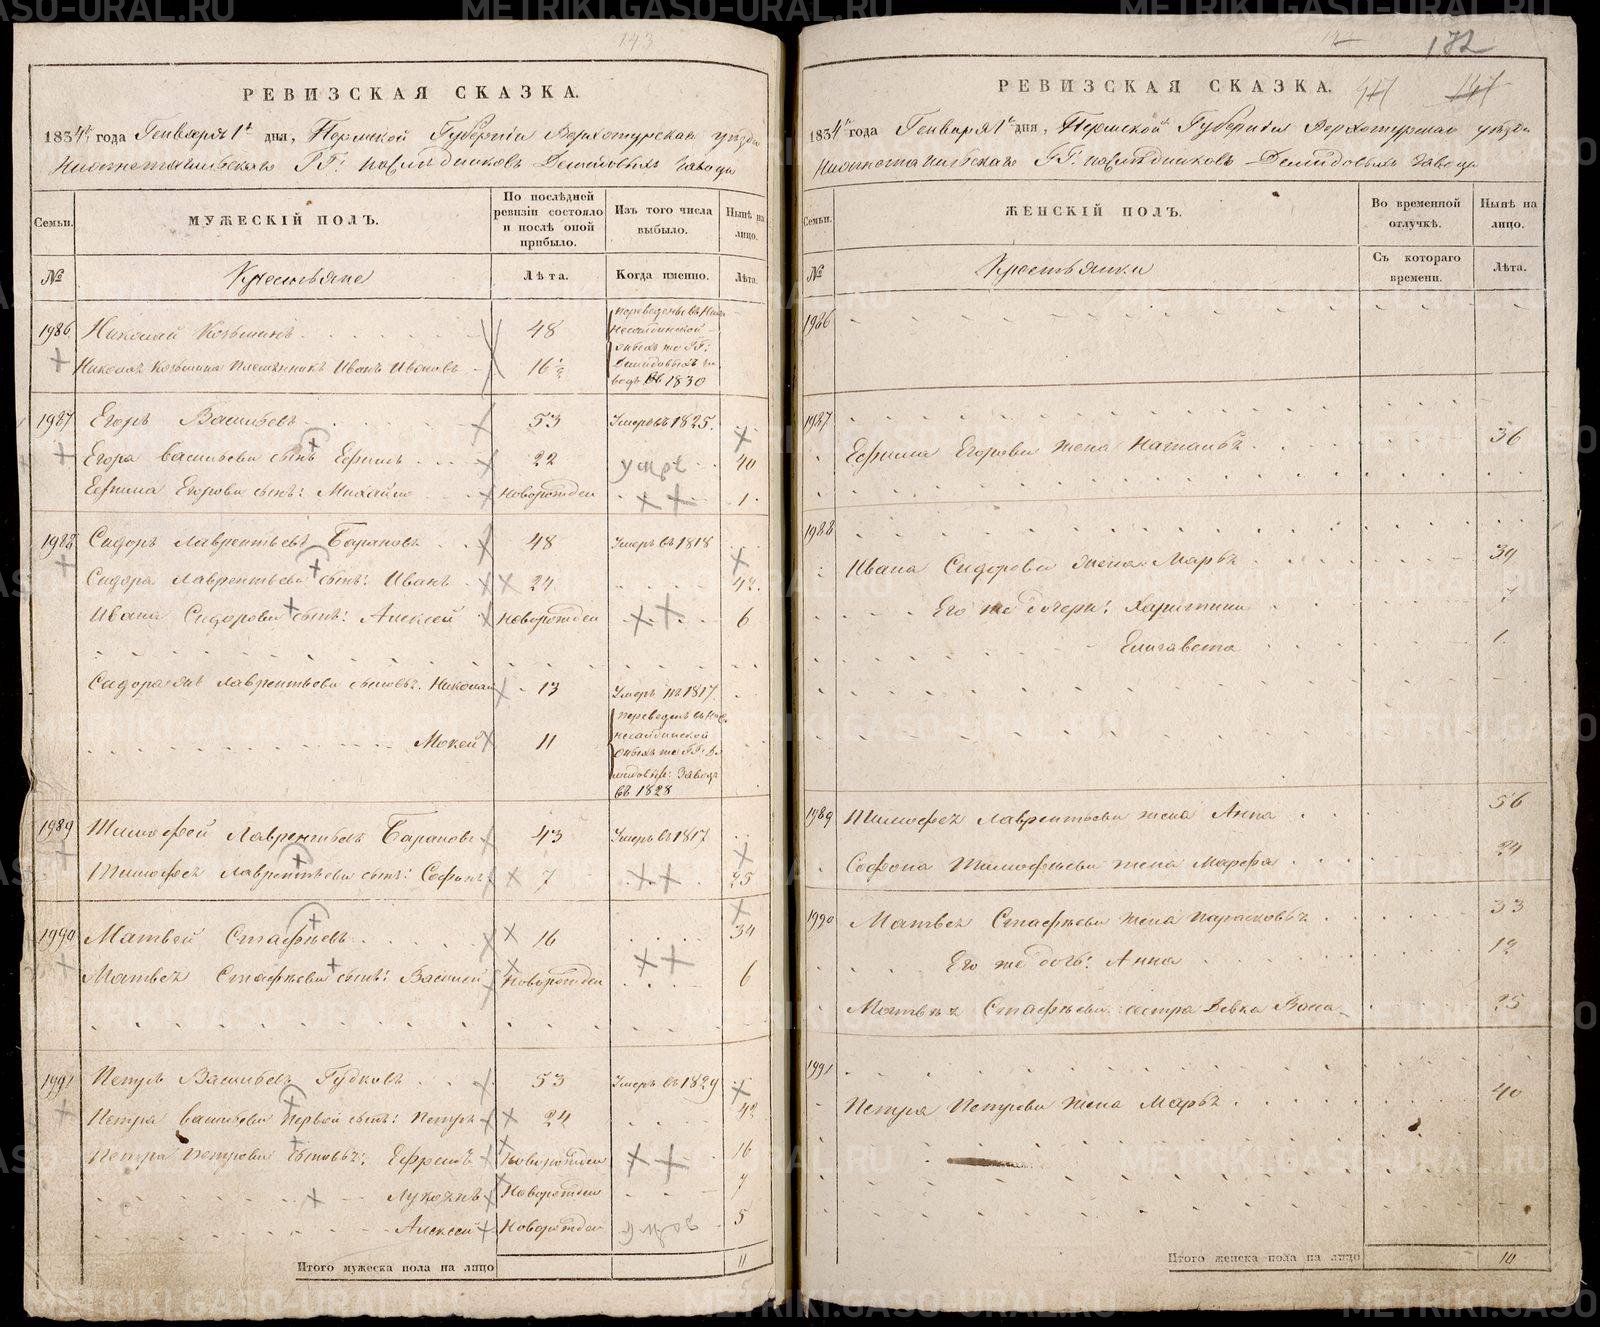 143
РЕВИЗСКАЯ СКАЗКА.
1834го года Генваря 1го дня, Пермской Губернiи Верхотурскаго уѣзда
Нижнетагильскаго ГГ: наслѣдниковъ Демидовыхъ завода
Семьи.
МУЖЕСКIЙ ПОЛЪ.
По послѣдней ревизiи состояло и послѣ оной прибыло.
Изъ того числа выбыло.
Нынѣ на лицо.
№
Крестьяне
Лѣта.
Когда именно.
Лѣта.
1986 Николай Козьминъ 48 переведены въ Ниж
несалдинской
Николая Козьмина племянникъ Иванъ Ивановъ 16½ оныхъ же ГГ:
Демидовыхъ за
водъ въ 1830
1987 Егоръ Васильевъ 53 Умеръ въ 1825.
Егора Васильева сынъ Ефимъ 22 умръ 40
Ефима Егорова сынъ: Михайло новорожден 1
1988 Сидоръ Лаврентьевъ Барановъ 48 Умеръ въ 1818
Сидора Лаврентьева сынъ: Иванъ 24 42.
Ивана Сидорова сынъ: Алексей новорожден 6
Сидора Лаврентьева сыновья: Николай 13 Умеръ въ 1817
переведенъ въ Ниж
Мокей 11 несалдинской
оныхъ же ГГ: Де
мидовых: Заводъ
въ 1828
1989 Тимофей Лаврентьевъ Барановъ 43 Умеръ въ 1817
Тимофея Лаврентьева сынъ: Софонъ 7 25
1990 Матвей Стафѣевъ 16 34
Матвея Стафѣева сынъ: Василей Новорожден 6
1991 Петръ Васильевъ Гудковъ 53 Умеръ въ 1829
Петра Васильева первой сынъ: Петръ 24 42
Петра Петрова сыновья: Ефремъ Новорожден 16
Новорожден 7
Алексей Новорожден 5
Итого мужеска пола на лицо 11
182
РЕВИЗСКАЯ СКАЗКА.
1834го года Генваря 1го дня, Пермской Губернiи Верхотурскаго уѣзда
Нижнетагильскаго ГГ: наслѣдниковъ Демидовыхъ завода
Семьи.
ЖЕНСКIЙ ПОЛЪ.
Во временной отлучкѣ.
Нынѣ на лицо.
№
Крестьянки
Съ котораго времени.
Лѣта.
1986
1987
Ефима Егорова жена Наталья 36
1988
Ивана Сидорова жена Марья 39
Его же дочери: Харитина 7
Елизавета 1.
1989 Тимофея Лаврентьева жена Анна 56
Софона Тимофѣева жена Марфа 24
1990 Матвея Стафѣева жена Парасковья 33
Его же дочь: Анна 12
Матвея Стафѣева сестра девка 25
1991
Петра Петрова жена Марья 40
Итого женска пола на лицо 10
METRIKI.GASO-URAL.RU